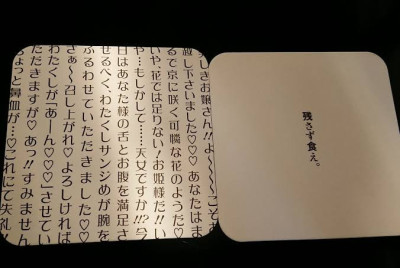 しきお嬢さん!!よ〜〜〜こそお
越し下さいました♡♡♡あなたはま
るで京に咲く可憐な花のようだ♡
いや、花では足りない!お姫様だ!!い
や…もしかして……天女ですか!?今
日はあなた様の舌とお腹を満足さ
せるべく、わたくしサンジめが腕を
ふるわせていただきました♡♡
さぁ〜召し上がれ♡よろしければ
わたくしが「あーん♡♡♡」させてい
ただきますが♡あっ!!すみません
ちょっと鼻血が…♡これにて失礼!!
残さず食え。